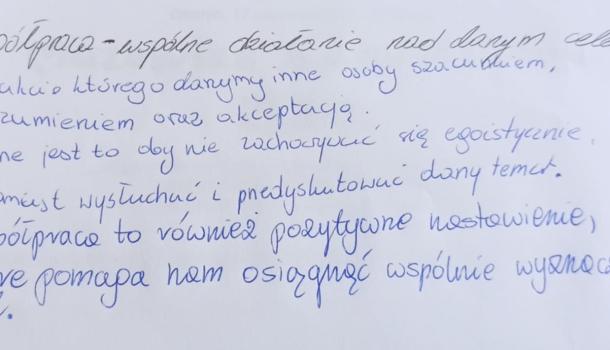 ółpraca - wspólne działanie nad danym cele
akcie którego darzymy inne osoby szacunkiem,
zumieniem oraz akceptacją.
ne jest to aby nie zachowywać się egoistycznie,
omiast wysłuchać i przedyskutować dany temat.
ółpraca to również pozytywne nastawienie,
re pomaga nam osiągnąć wspólnie wyznacz